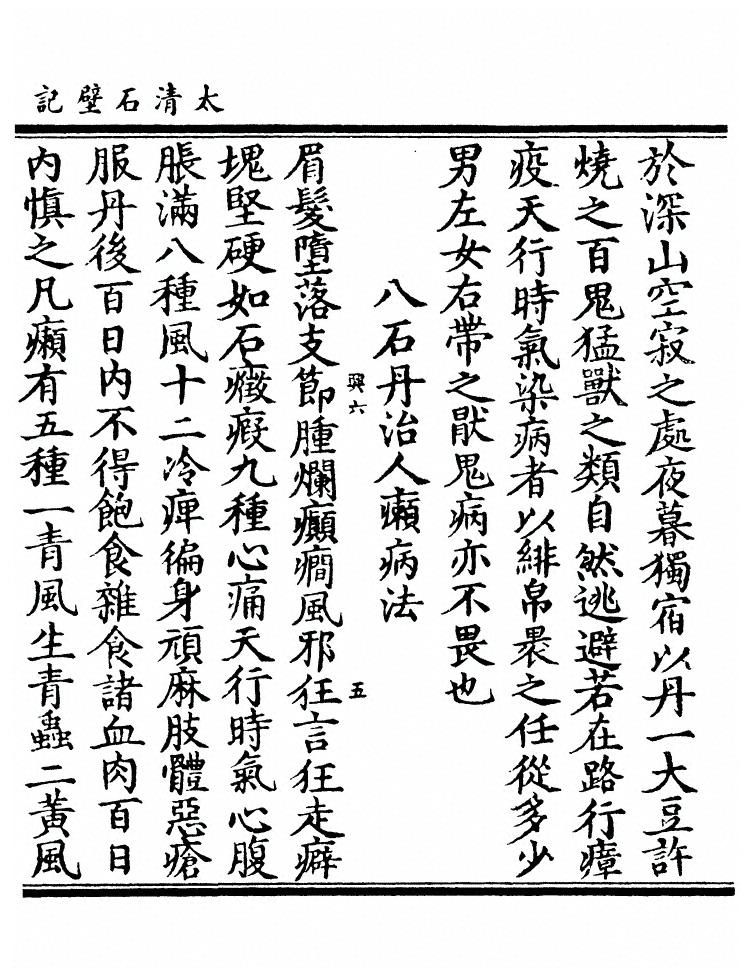 太清石壁記
於深山空寂之處夜暮獨宿以丹一大豆許
燒之百鬼猛獸之類自然逃避若在路行瘴
疫天行時氣染病者以緋帛褁之任從多少
男左女右帶之厭鬼病亦不畏也
八石丹治人癩病法
興六
五
眉髮墮落支節腫爛癲癎風邪狂言狂走癖
塊堅硬如石癥瘕九種心痛天行時氣心腹
脹滿八種風十二冷痺徧身頑麻肢體惡瘡
服丹後百日內不得飽食雜食諸血肉百日
內慎之凡癩有五種一青風生青蟲二黃風